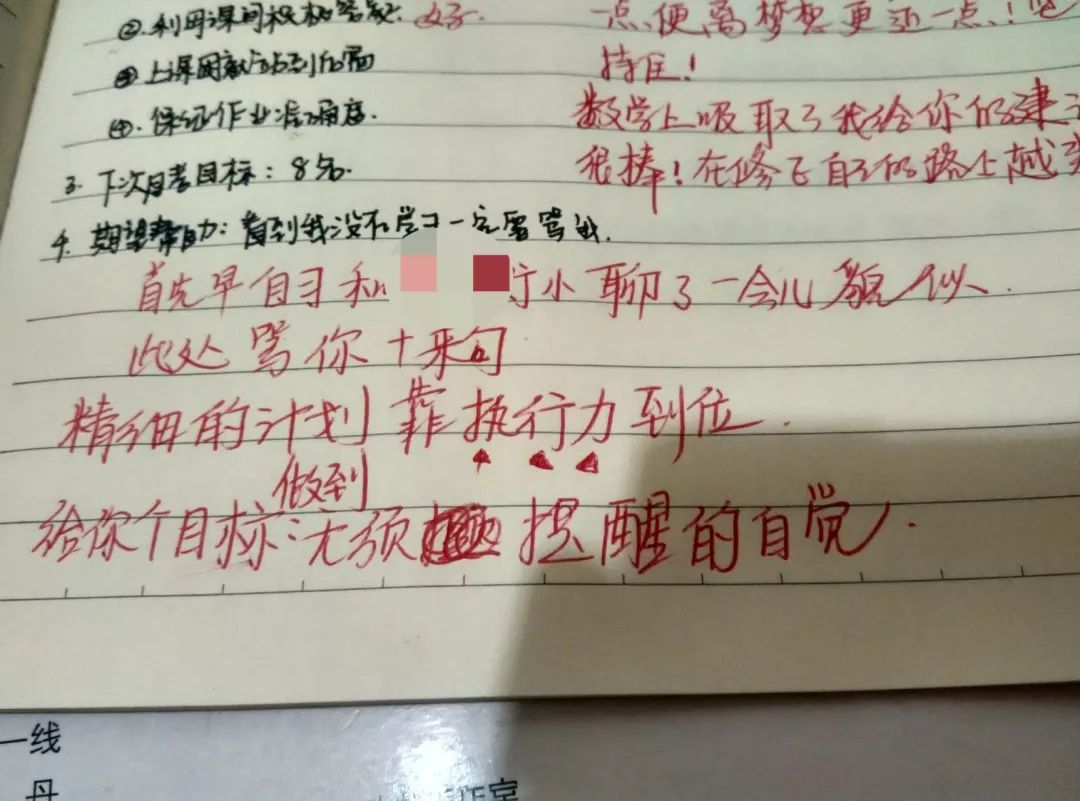 ②.利用课间积极答疑. 好
④上课困就站到后面
④.保证作业准确度.
3.下次月考目标：8名.
4.期望帮助：看到我没在学习一定要骂我.
一点,便离梦想更近一点!坚
持住!
数学上吸取了我给你的建
很棒!在修正自己的路上越
首先早自习和 小聊了一会儿貌似.
此处骂你十来句
精细的计划靠执行力到位.
做到
给你个目标:无须提醒的自觉.
一线
丹